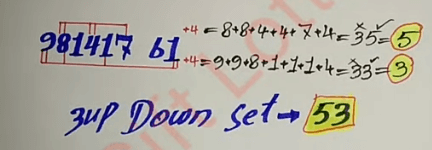 +4 = 8+8+4+4+7+4 = 35 = 5
981417 61
+4 = 9+9+8+1+1+1+4 = 33 = 3
3up Down set → 53